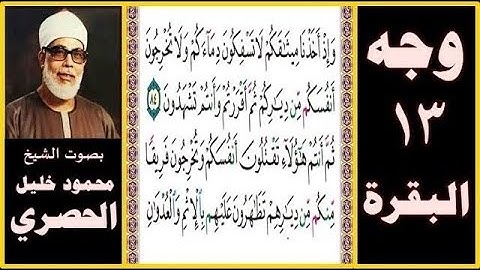 وجه
١٣
البقرة
وَإِذْ أَخَذْنَا مِيثَٰقَكُمْ لَا تَسْفِكُونَ دِمَآءَكُمْ وَلَا تُخْرِجُونَ
أَنفُسَكُم مِّن دِيَٰرِكُمْ ثُمَّ أَقْرَرْتُمْ وَأَنتُمْ تَشْهَدُونَ ٨٤
ثُمَّ أَنتُمْ هَٰٓؤُلَآءِ تَقْتُلُونَ أَنفُسَكُمْ وَتُخْرِجُونَ فَرِيقًا
مِّنكُم مِّن دِيَٰرِهِمْ تَظَٰهَرُونَ عَلَيْهِم بِٱلْإِثْمِ وَٱلْعُدْوَٰنِ
بصوت الشيخ
محمود خليل
الحصري